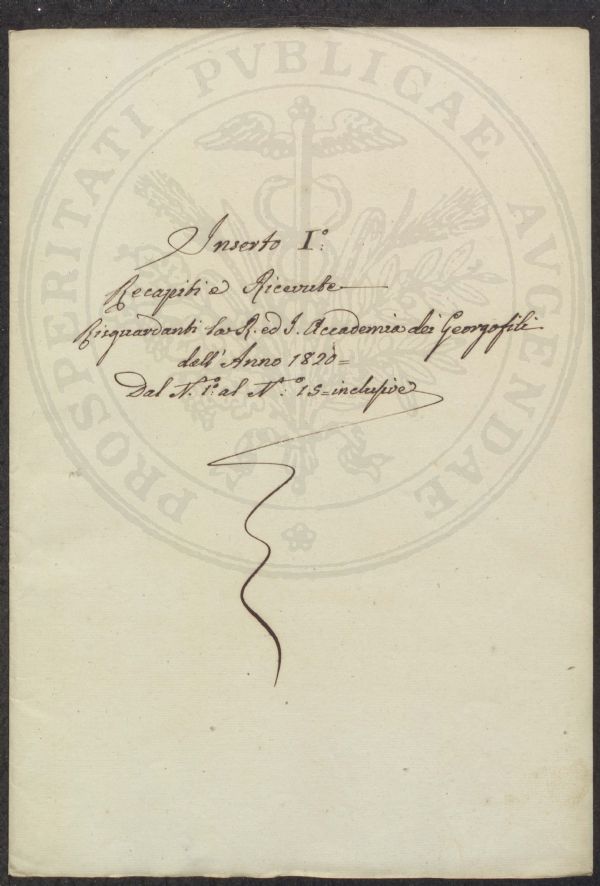 PROSPERITATI PVBLICAE AVGENDAE
Inserto I.º
Recapiti e Ricevute
Risguardanti la R. ed I. Accademia dei Georgofili
dell'Anno 1820=
Dal N. 1.º al N.º 15= inclusive